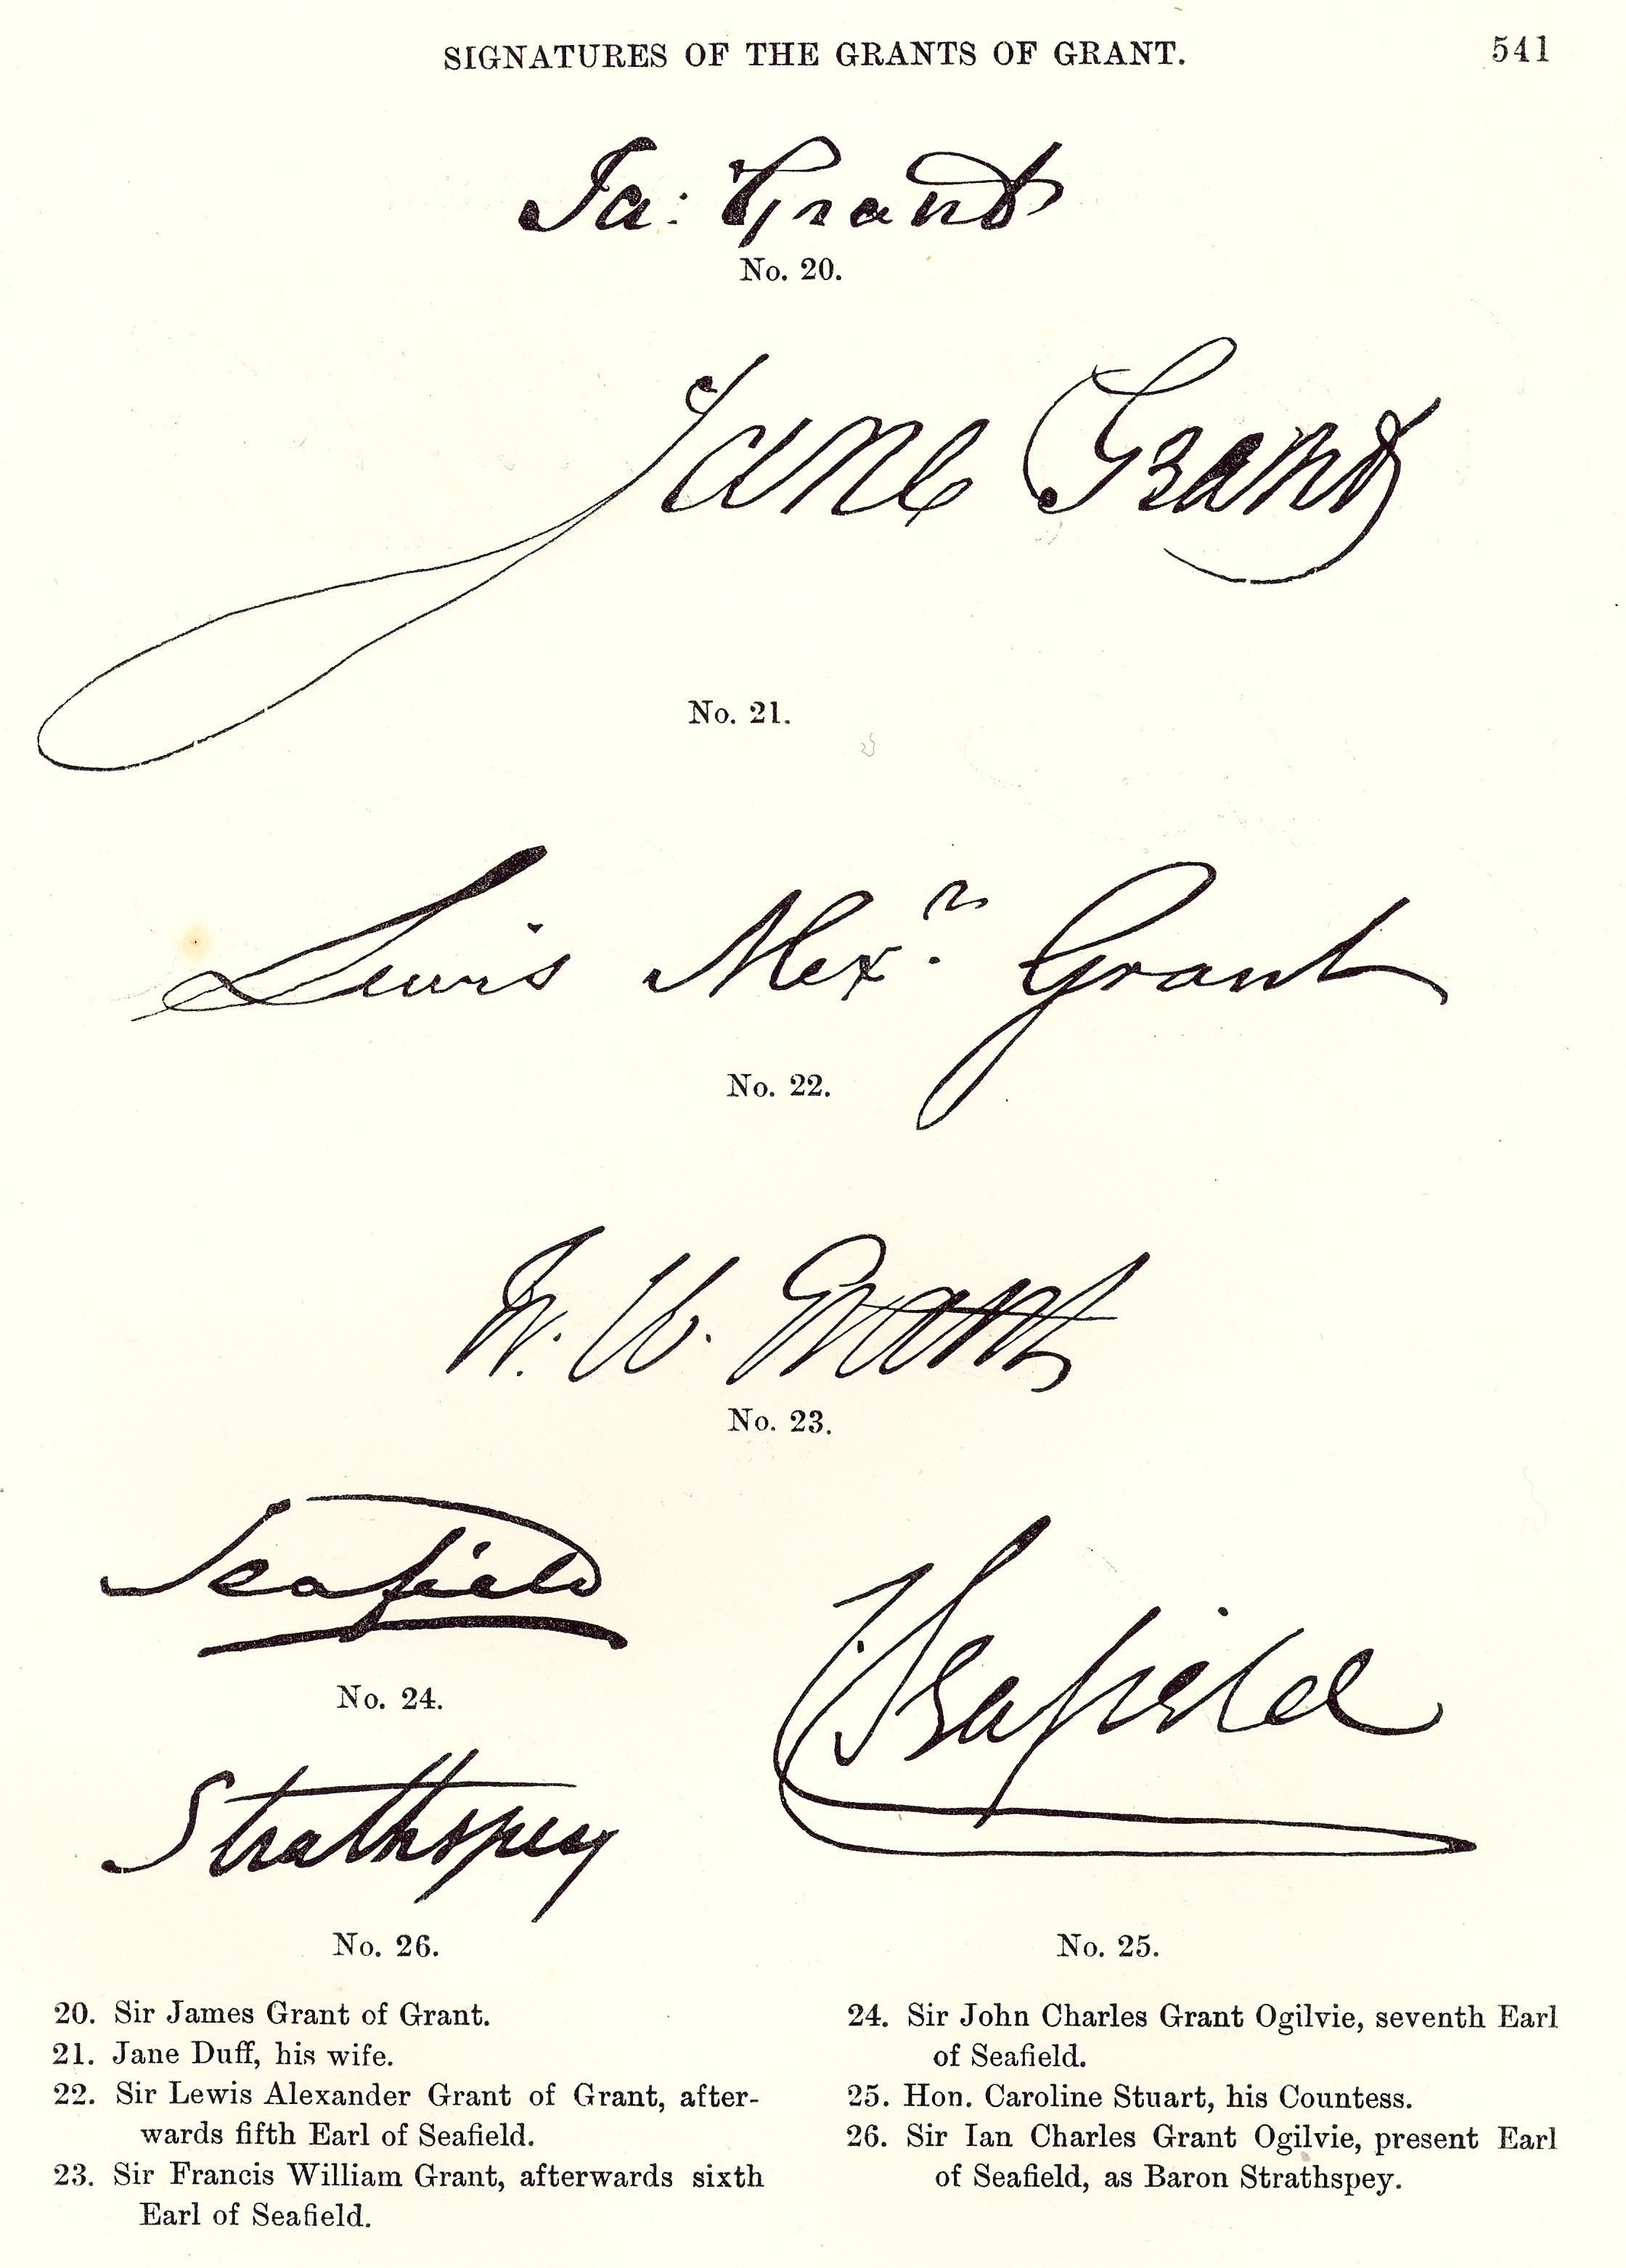 SIGNATURES OF THE GRANTS OF GRANT. 541
Ja: Grant
No. 20.
Jane Grant
No. 21.
Lewis Alexr. Grant
No. 22.
F. W. Grant
No. 23.
Seafield
No. 24.
C Seafield
Strathspey
No. 26.
No. 25.
20. Sir James Grant of Grant.
21. Jane Duff, his wife.
22. Sir Lewis Alexander Grant of Grant, after-
wards fifth Earl of Seafield.
23. Sir Francis William Grant, afterwards sixth
Earl of Seafield.
24. Sir John Charles Grant Ogilvie, seventh Earl
of Seafield.
25. Hon. Caroline Stuart, his Countess.
26. Sir Ian Charles Grant Ogilvie, present Earl
of Seafield, as Baron Strathspey.